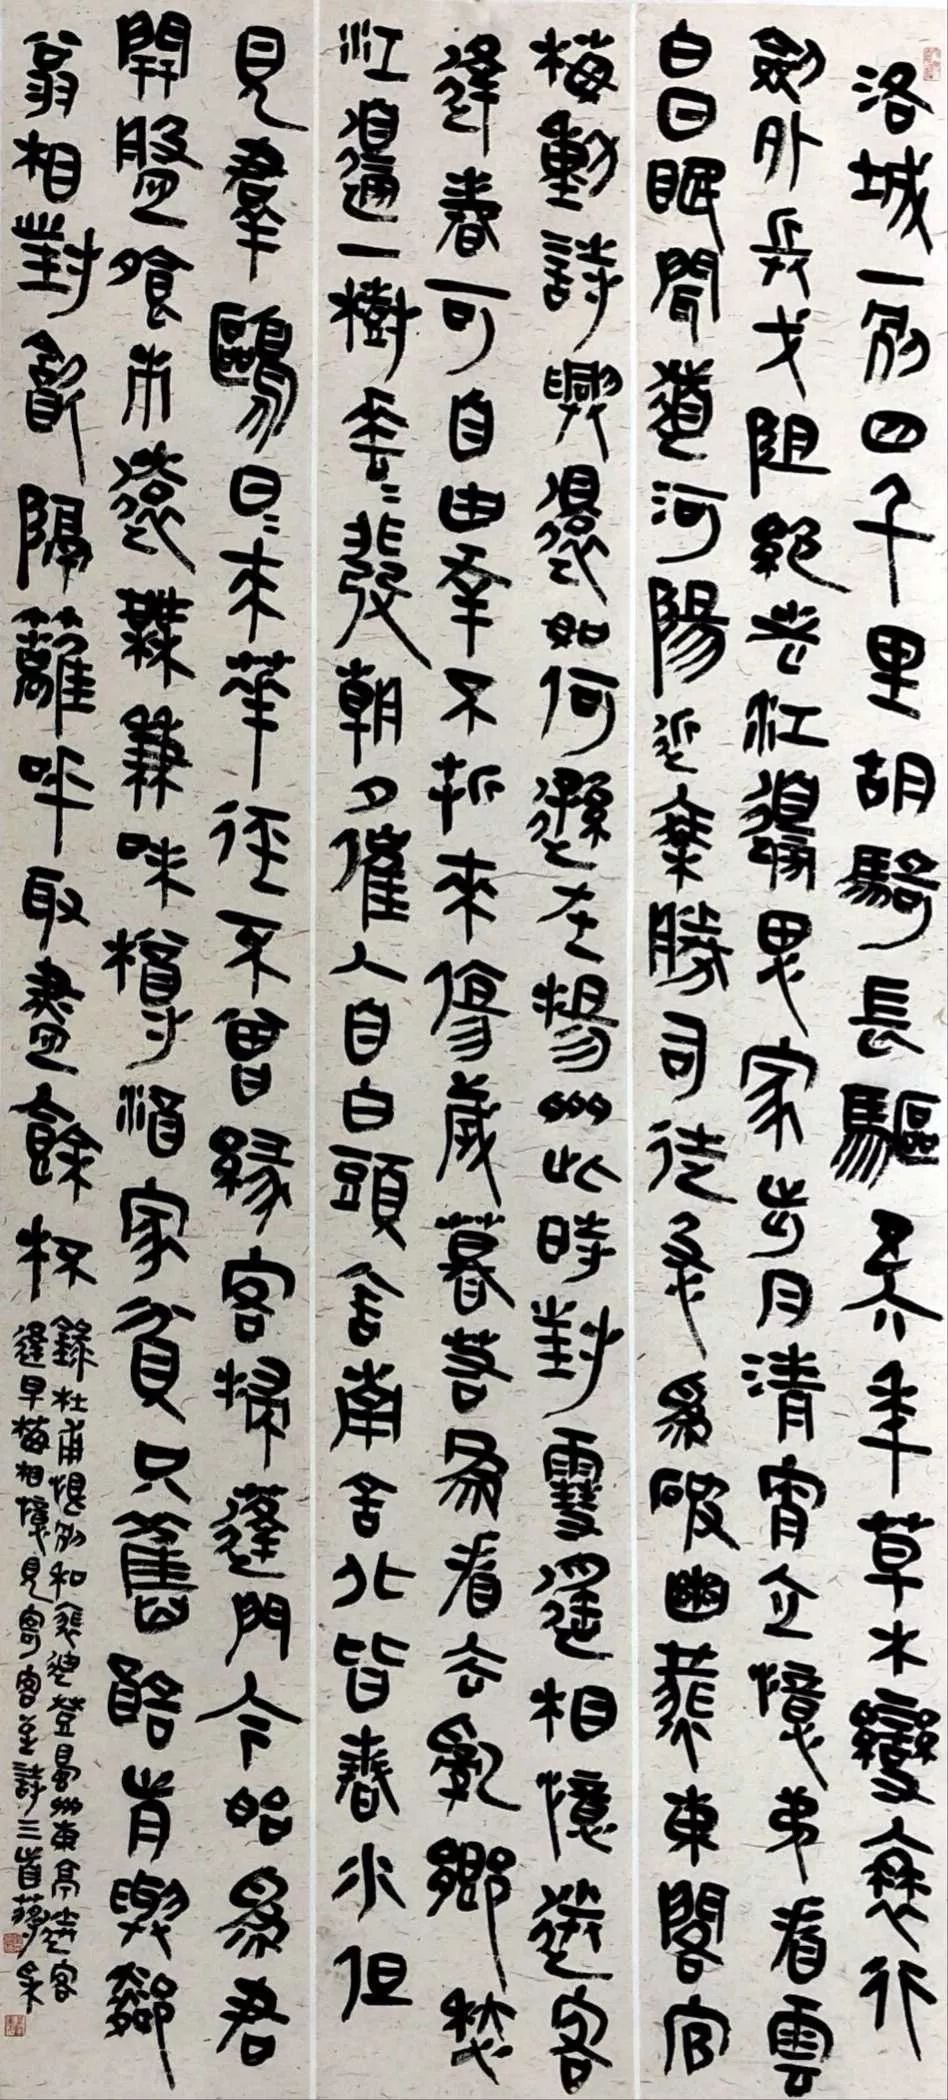 洛城一別四千里胡騎長驅五六年草木變衰行
劍外兵戈阻絕老江邊思家步月清宵立憶弟看雲
白日眠聞道河陽近乘勝司徒急為破幽燕東閣官
梅動詩興還如何遜在揚州此時對雪遙相憶送客
逢春可自由幸不折來傷歲暮若為看去亂鄉愁
江邊一樹垂〻發朝夕催人自白頭舍南舍北皆春水但
見羣鷗日〻來華徑不曾緣客掃蓬門今始為君
開盤飧市遠無兼味樽酒家貧只舊醅肯與鄰
翁相對飲隔籬呼取盡餘杯
錄杜甫恨別和裴迪登蜀州東亭送客
逢早梅相憶見寄客至詩三首